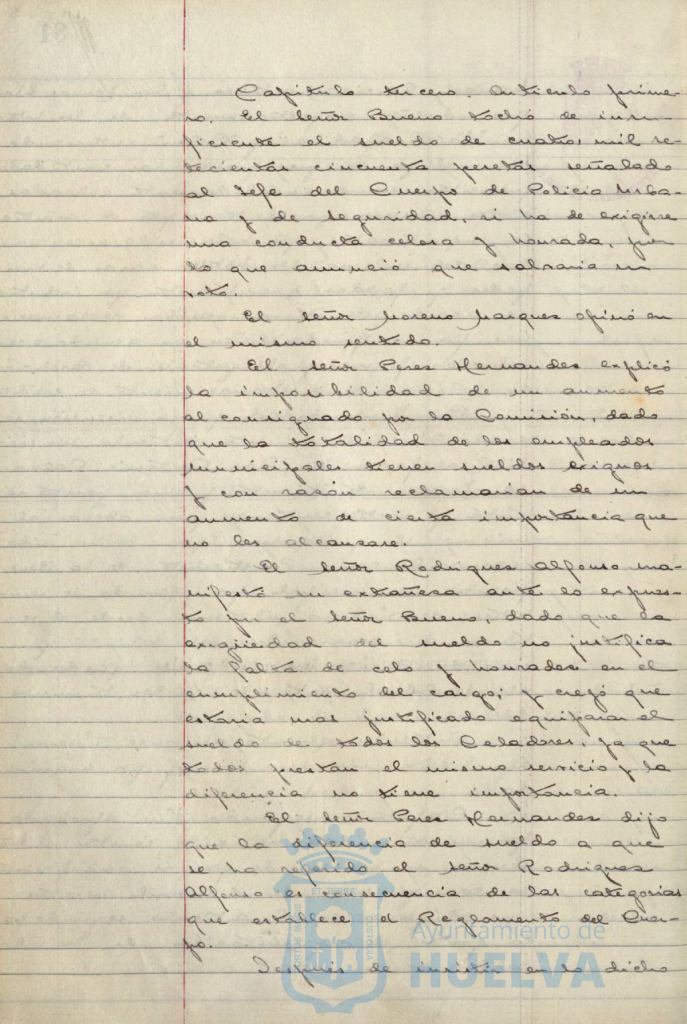 Capitulo tercero. Articulo prime-
ro. El señor Bueno tachó de insu-
ficiente el sueldo de cuatro mil se-
tecientas cincuenta pesetas señalado
al Jefe del Cuerpo de Policia Urba-
na y de seguridad, si ha de exigirse
una conducta celosa y honrada, por
lo que anunció que salvaria su
voto.
El señor Moreno Marquez opinó en
el mismo sentido.
El señor Perez Hernandez explicó
la imposibilidad de un aumento
al consignado por la Comisión, dado
que la totalidad de los empleados
municipales tienen sueldos exiguos
y con razón reclamarian de un
aumento de cierta importancia que
no les alcanzase.
El señor Rodriguez Alfonso ma-
nifestó su extrañeza ante lo expues-
to por el señor Bueno, dado que la
exigüedad del sueldo no justifica
la falta de celo y honradez en el
cumplimiento del cargo; y creyó que
estaria mas justificado equiparar el
sueldo de todos los Celadores, ya que
todos prestan el mismo servicio y la
diferencia no tiene importancia.
El señor Perez Hernandez dijo
que la diferencia de sueldo a que
se ha referido el señor Rodriguez
Alfonso es consecuencia de las categorias
que establece el Reglamento del Cuer-
po.
Después de insistir en lo dicho
Ayuntamiento de
HUELVA